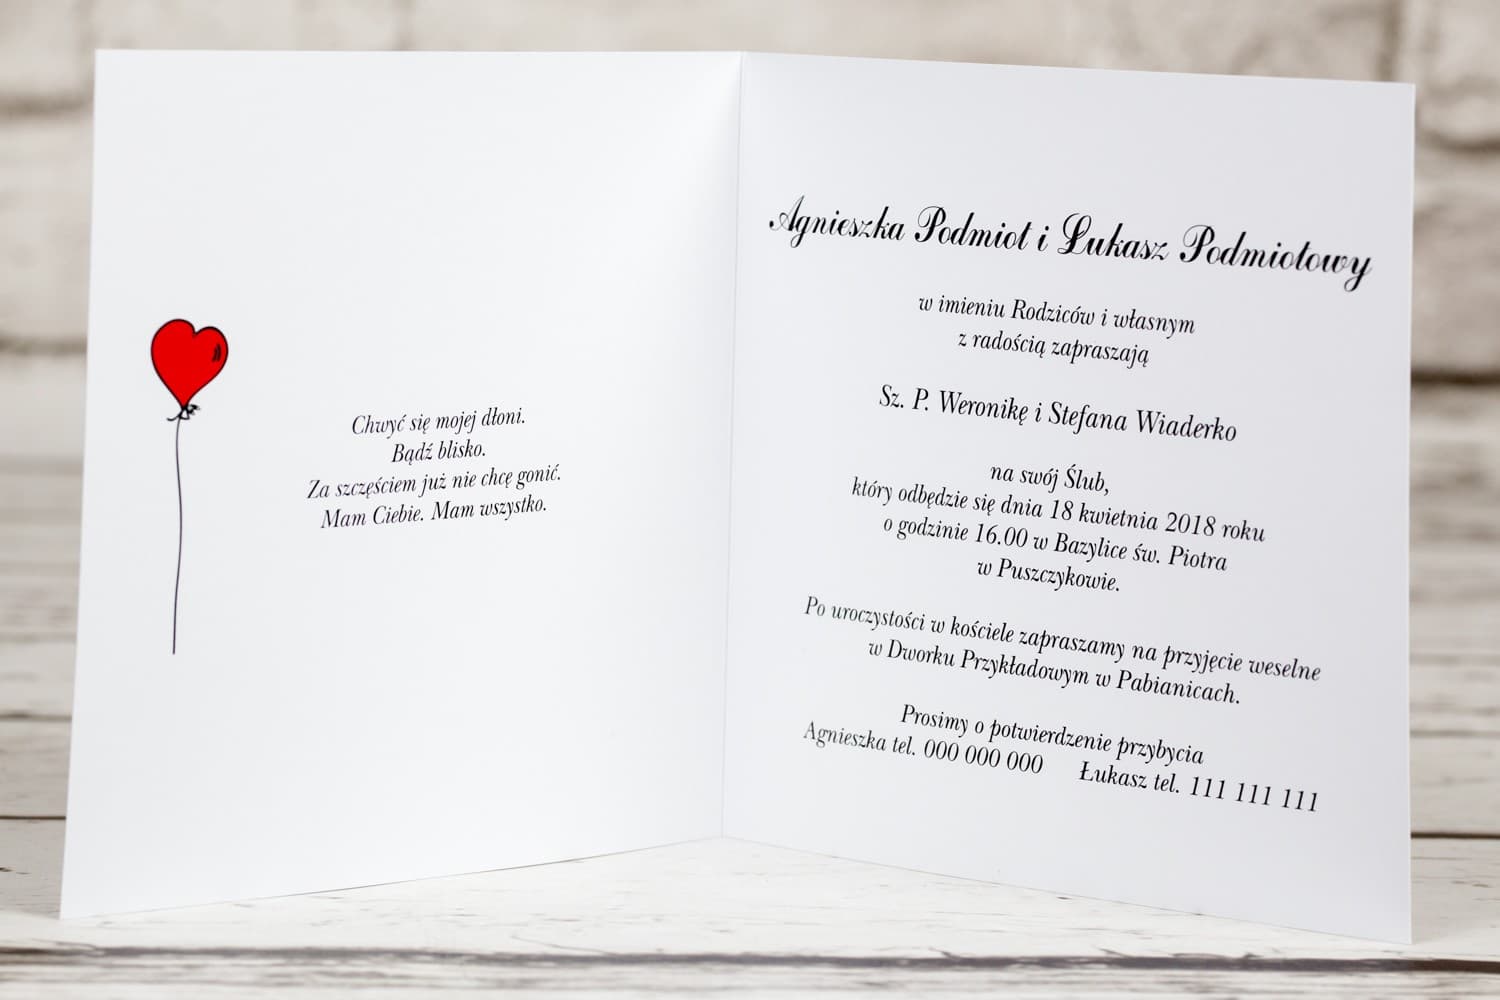 Chwyć się mojej dłoni.
Bądź blisko.
Za szczęściem już nie chcę gonić.
Mam Ciebie. Mam wszystko.
Agnieszka Podmiot i Łukasz Podmiotowy
w imieniu Rodziców i własnym
z radością zapraszają
Sz. P. Weronikę i Stefana Wiaderko
na swój Ślub,
który odbędzie się dnia 18 kwietnia 2018 roku
o godzinie 16.00 w Bazylice św. Piotra
w Puszczykowie.
Po uroczystości w kościele zapraszamy na przyjęcie weselne
w Dworku Przykładowym w Pabianicach.
Prosimy o potwierdzenie przybycia
Agnieszka tel. 000 000 000 Łukasz tel. 111 111 111